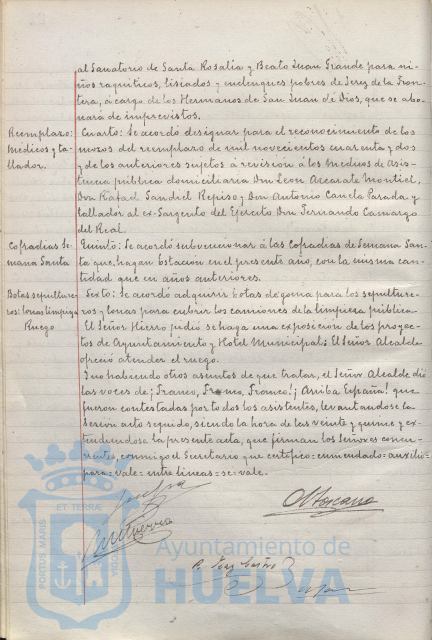 al Sanatorio de Santa Rosalía y Beato Juan Grande para ni-
ños raquíticos, lisiados y enclenques pobres de Jerez de la Fron-
tera, á cargo de los Hermanos de San Juan de Dios, que se abo-
nará de imprevistos.
Reemplazo:
Médicos y ta-
llador.
Cuarto: Se acordó designar para el reconocimiento de los
mozos del reemplazo de mil novecientos cuarenta y dos
y de los anteriores sujetos á revisión á los Médicos de Asis-
tencia pública domiciliaria Don León Azcarate Montiel,
Don Rafael Sandiel Repiso y Don Antonio Canela Parada y
tallador al ex-Sargento del Ejército Don Fernando Camargo
del Real.
Cofradías Se-
mana Santa
Quinto: Se acordó subvencionar á las Cofradías de Semana San-
ta que hagan Estación en el presente año, con la misma can-
tidad que en años anteriores.
Botas sepulture-
ros: lonas limpieza
Ruego
Sexto: Se acordó adquirir botas de goma para los sepulture-
ros y lonas para cubrir los camiones de la limpieza pública.
El Señor Hierro pidió se haga una exposición de los proyec-
tos de Ayuntamiento y Hotel Municipal: El Señor Alcalde
ofreció atender el ruego.
Y no habiendo otros asuntos de que tratar, el Señor Alcalde dió
las voces de ¡Franco, Franco, Franco! ¡Arriba España! que
fueron contestadas por todos los asistentes, levantándose la
Sesión acto seguido, siendo la hora de las veinte y quince y ex-
tendiéndose la presente acta, que firman los Señores concu-
rrentes, conmigo el Secretario que certifico=enmendado=auxilio=
para=vale=entre lineas=se=vale.
PORTUS MARIS
ET TERRÆ
CUSTODIA
Ayuntamiento de
HUELVA